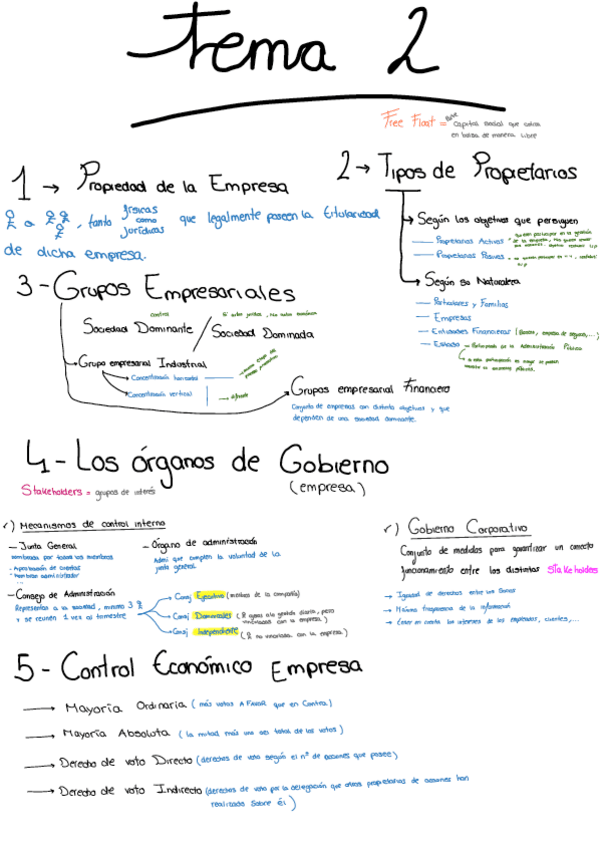 Tema 2
Free Float = Capital social que cotiza
en bolsa de manera libre
1 → Propiedad de la Empresa
o , tanto físicas como jurídicas que legalmente poseen la titularidad
de dicha empresa.
2 → Tipos de Propietarios
Según los objetivos que persiguen
Propietarios Activos
Propietarios Pasivos
Según su Naturaleza
Particulares y Familias
Empresas
Entidades Financieras (Bancos, empresas de seguros,...)
Estado → Participada de la Administración Pública
3 - Grupos Empresariales
control
Sociedad Dominante / Sociedad Dominada
Grupo empresarial Industrial
Concentración horizontal
Concentración vertical
Grupos empresarial Financiero
Conjunto de empresas con distinto objetivos y que
dependen de una sociedad dominante.
4 - Los órganos de Gobierno
(empresa)
Stakeholders = grupos de interés
✓) Mecanismos de control interno
- Junta General
nombrada por todos los miembros
• Aprobación de cuentas
• Nombran administrador
...
- Órgano de administración
Admi que cumplen la voluntad de la
junta general
- Consejo de Administración
Representas a la sociedad, mínimo 3
y se reunen 1 vez al trimestre
Consj Ejecutivo (miembros de la compañía)
Consj Dominicales ( ajena a la gestión diaria, pero
vinculados con la empresa)
Consj Independiente ( no vinculada con la empresa)
✓) Gobierno Corporativo
Conjunto de medidas para garantizar un correcto
funcionamiento entre los distintos Stakeholders
→ Igualdad de derechos entre los socios
→ Máxima trasparencia de la información
→ Tener en cuenta los intereses de los empleados, clientes,...
5 - Control Económico Empresa
→ Mayoría Ordinaria (más votos A FAVOR que en Contra)
→ Mayoría Absoluta (la mitad más uno del total de los votos)
→ Derecho de voto Directo (derechos de voto según el nº de acciones que posee)
→ Derecho de voto Indirecto (derechos de voto por la delegación que otros propietarios de acciones han
realizado sobre él)